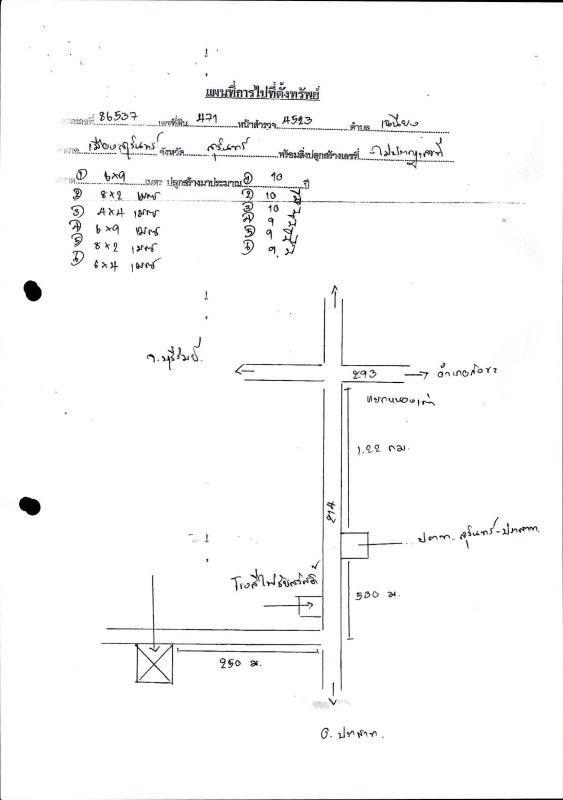 แผนที่การไปที่ตั้งทรัพย์
86537 เลขที่ดิน 471 หน้าสำรวจ 4523 ตำบล เฉนียง
เมืองสุรินทร์ จังหวัด สุรินทร์ พร้อมสิ่งปลูกสร้างเลขที่ ไม่ปรากฏเลขที่
① 6x9 เมตร ปลูกสร้างมาประมาณ ① 10 ปี
② 8x2 เมตร ② 10 ปี
③ 4x4 เมตร ③ 10 ปี
④ 6x9 เมตร ④ 9 ปี
⑤ 8x2 เมตร ⑤ 9 ปี
⑥ 6x4 เมตร ⑥ 9 ปี
จ.บุรีรัมย์
293
แยกหนองเต่า
1.22 กม.
214
ปตท. สุรินทร์-ปราสาท
โรงสีไฟชัยสวัสดิ์
500 ม.
250 ม.
อ. ปราสาท